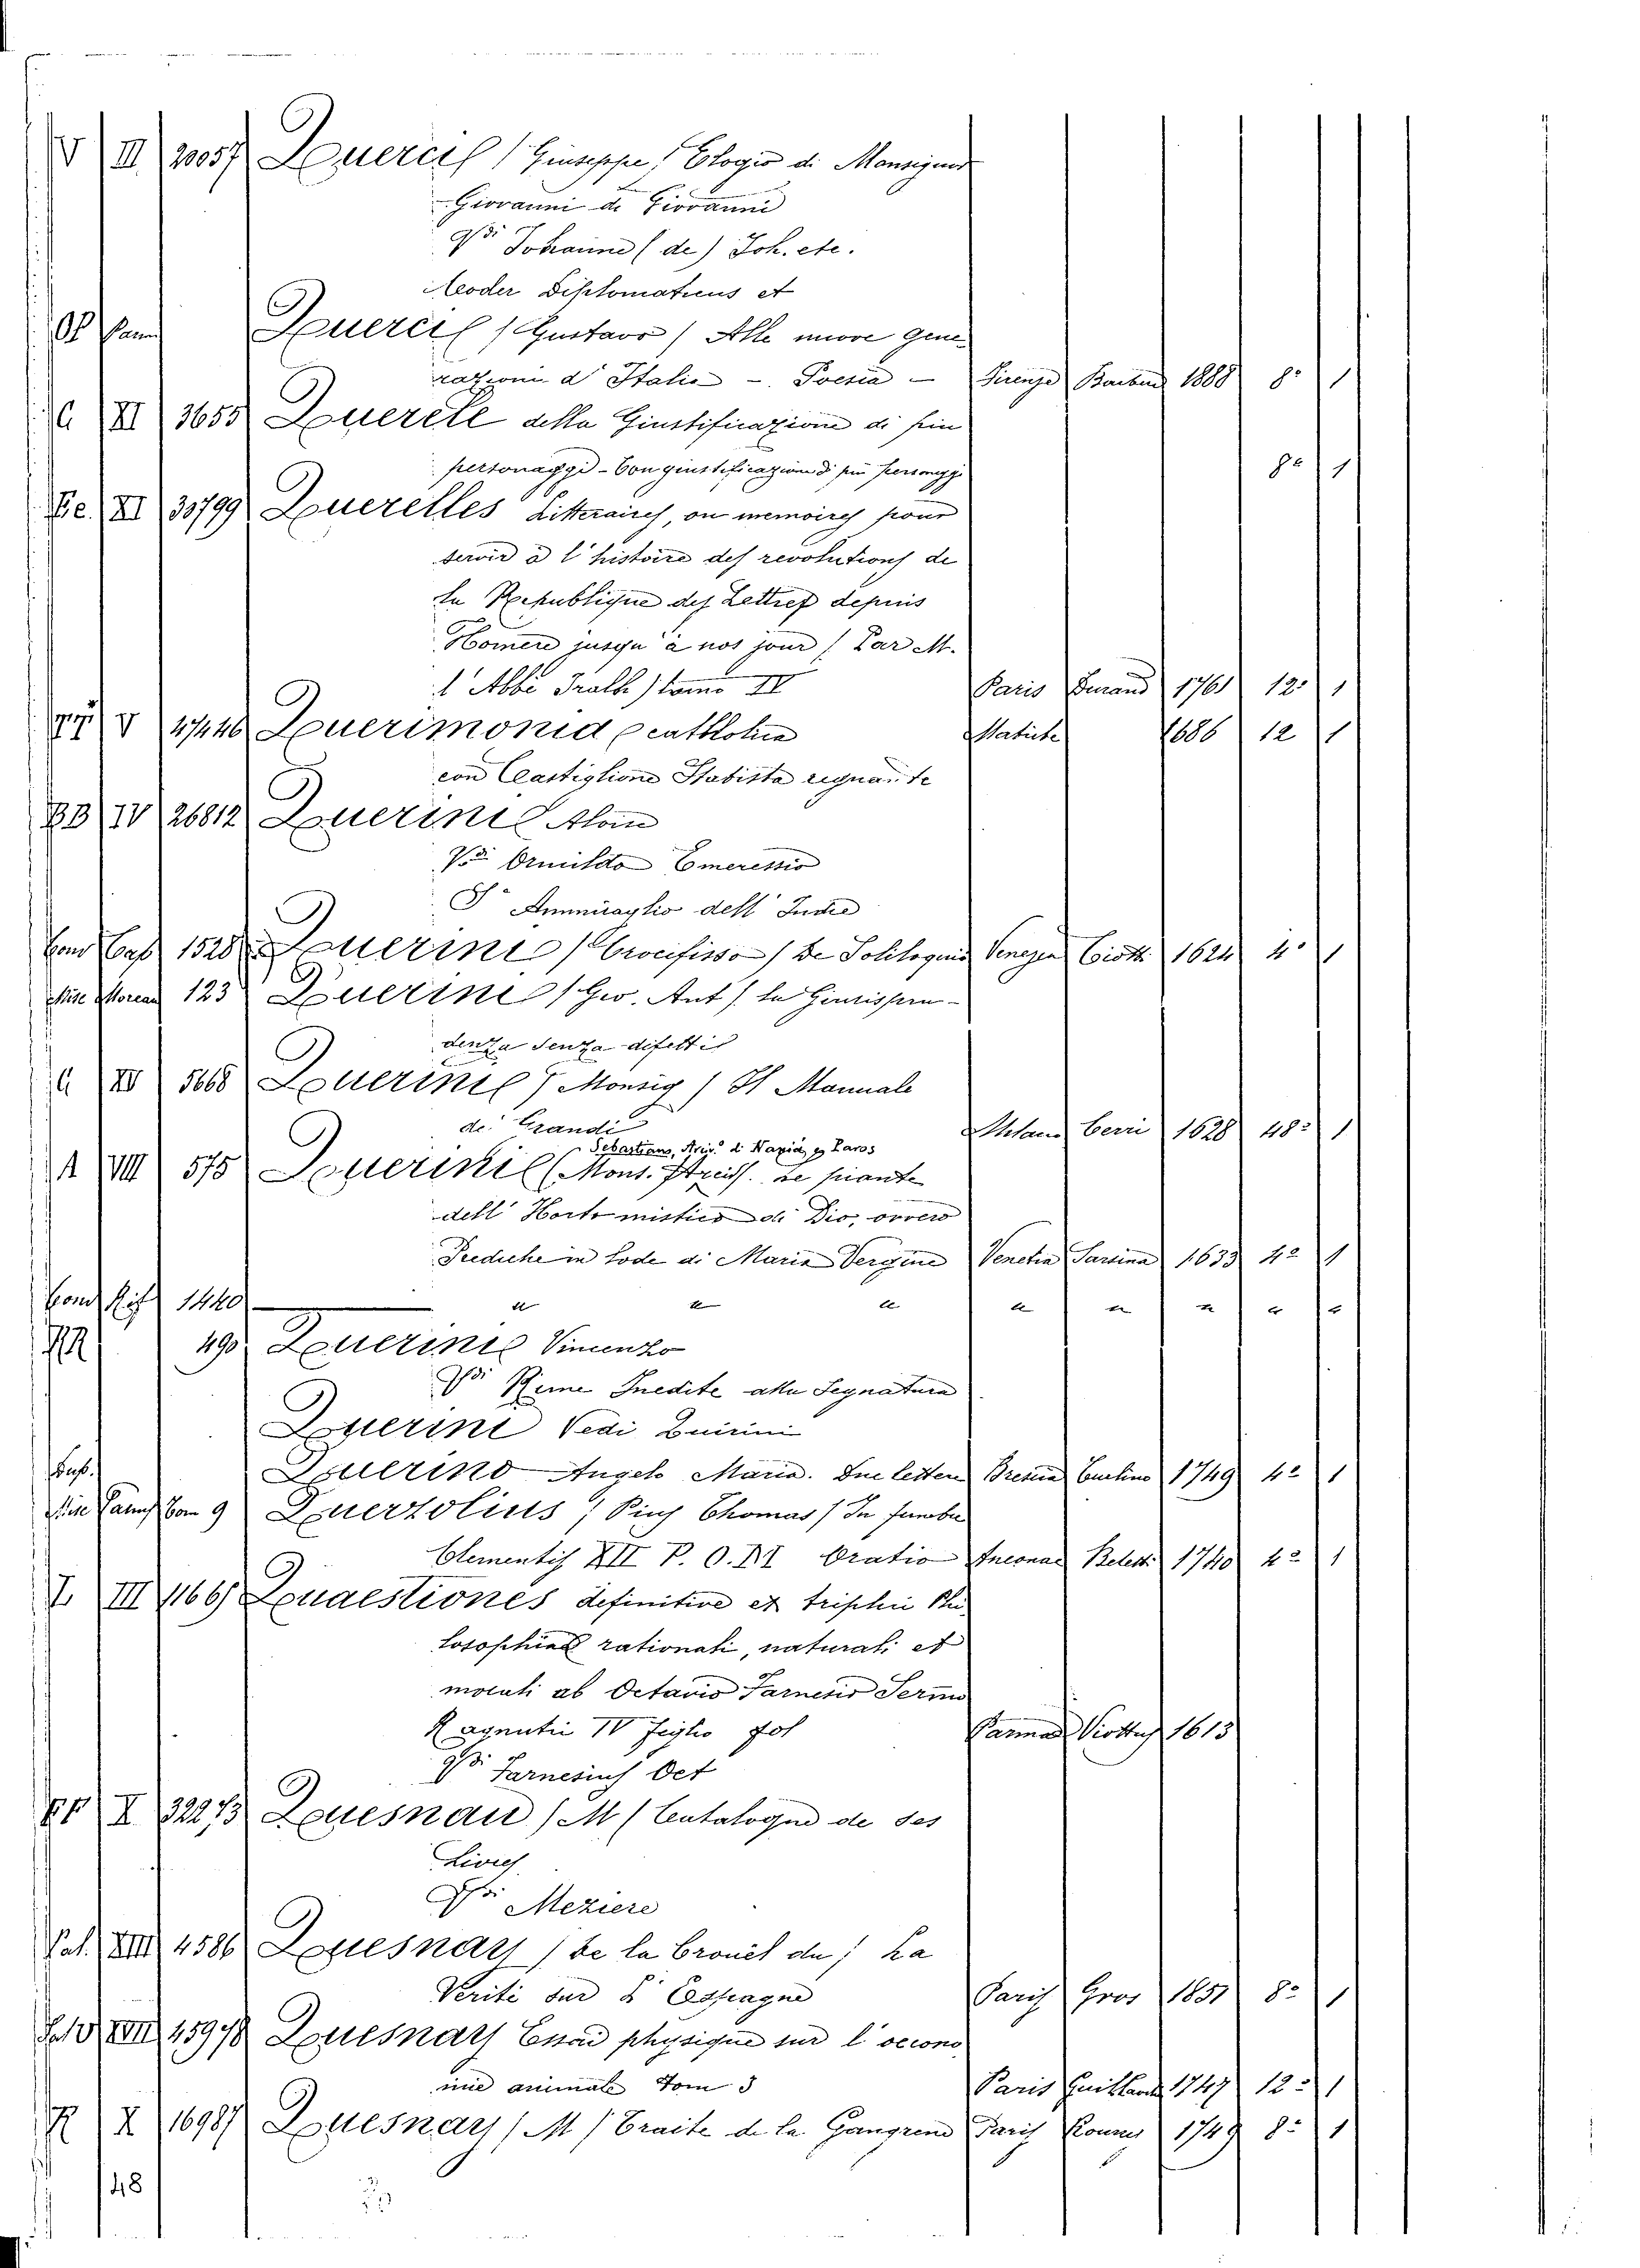 V III 20057 Querci (Giuseppe) Elogio di Monsignor
Giovanni di Giovanni
Vdi Johanne (de) Joh. etc.
Codex Diplomaticus et
Querci (Gustavo) Alle nuove gene
razioni d'Italia - Poesia - Firenze Barbera 1888 8º 1
C XI 3655 Querele della Giustificazione di fin
personaggi - Con giustificazione di più personaggi 8º 1
XI 30799 Querelles Litteraires, ou memoires pour
servir a l'histoire des revolutions de
la Republique des Lettres depuis
Homere jusqu'à nos jour (Par M.
l'Abbé Trailh) tomo IV Paris Durand 1761 12º 1
V 47446 Querimonia cattholica Matiche 1686 12 1
con Castiglione Stabista regnante
BB IV 26812 Querini Aloin
Vdi Ormildo Emeressio
L'Ammiraglio dell'Indie
Cap 1528 Querini (Crocifisso) De Solilogims Venezia Ciotti 1621 4º 1
Misc Moreau 123 Querini (Gio. Ant) La Giurispru-
denza senza difetti
C XV 5668 Querini (Monsig) Il Manuale
de' Grandi Milano Cerri 1628 48º 1
Sebastiano, Arciv. di Naxia, e Paros
A VIII 575 Querini (Mons. Le piante
dell'Horto mistico di Dio, overo
Prediche in lode di Maria Vergine Venetia Sarzina 1633 4º 1
1440 " " " " " " " "
490 Querini Vincenzo
Vdi Rime Inedite alla Segnatura
Querini Vedi Quirini
Querino Angelo Maria. Due lettere Brescia 1749 4º 1
9 Querzolius (Pius Thomas) In funebre
Clementis XII P. O. M Oratio Anconae Belelli 1740 4º 1
I III 1166 Quaestiones definitive ex triplici Phi
losophia rationali, naturali et
morali ab Octavio Farnesio Sermo
Ragnutii IV figlio fol Parmae Viottus 1613
Vdi Farnesius Oct
X 32273 Quesnau (M) Catalogue de ses
Livres
Vdi Meziere
Pal. XIII 4586 Quesnay (De la Brouet du) La
Verité sur L'Espagne Paris Gros 1851 8º 1
XVII 45978 Quesnay Essai physique sur l'oecono
mie animale Tom 3 Paris Guilland 1747 12º 1
R X 16987 Quesnay (M) Traite de la Gangrene Paris 1749 8º 1
48